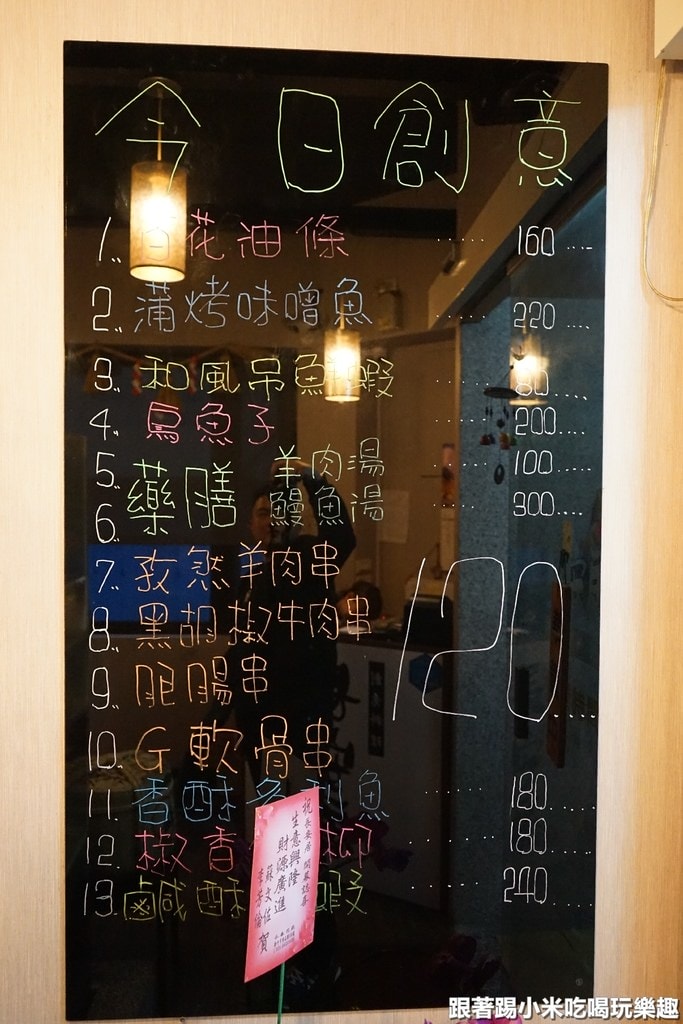 今日創意
1. 百花油條 ...... 160 ....
2. 蒲烤味噌魚 ...... 220 ....
3. 和風吊魚蝦 ...... 80 ....
4. 烏魚子 ...... 200 ....
5. 藥膳 羊肉湯 ...... 100 ....
6. 鰻魚湯 ...... 300 ....
7. 孜然羊肉串
8. 黑胡椒牛肉串
120 ....
9. 肥腸串
10. G軟骨串
11. 香酥多利魚 ...... 180 ....
12. 椒香 柳 ...... 180 ....
13. 鹹酥 蝦 ...... 240 ....
祝 開幕誌喜
生意興隆
財源廣進
賀
跟著踢小米吃喝玩樂趣